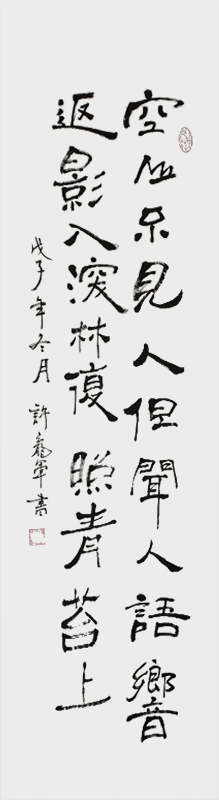 空山不見人但聞人語響
返影入深林復照青苔上
戊子年冬月 許 軍書